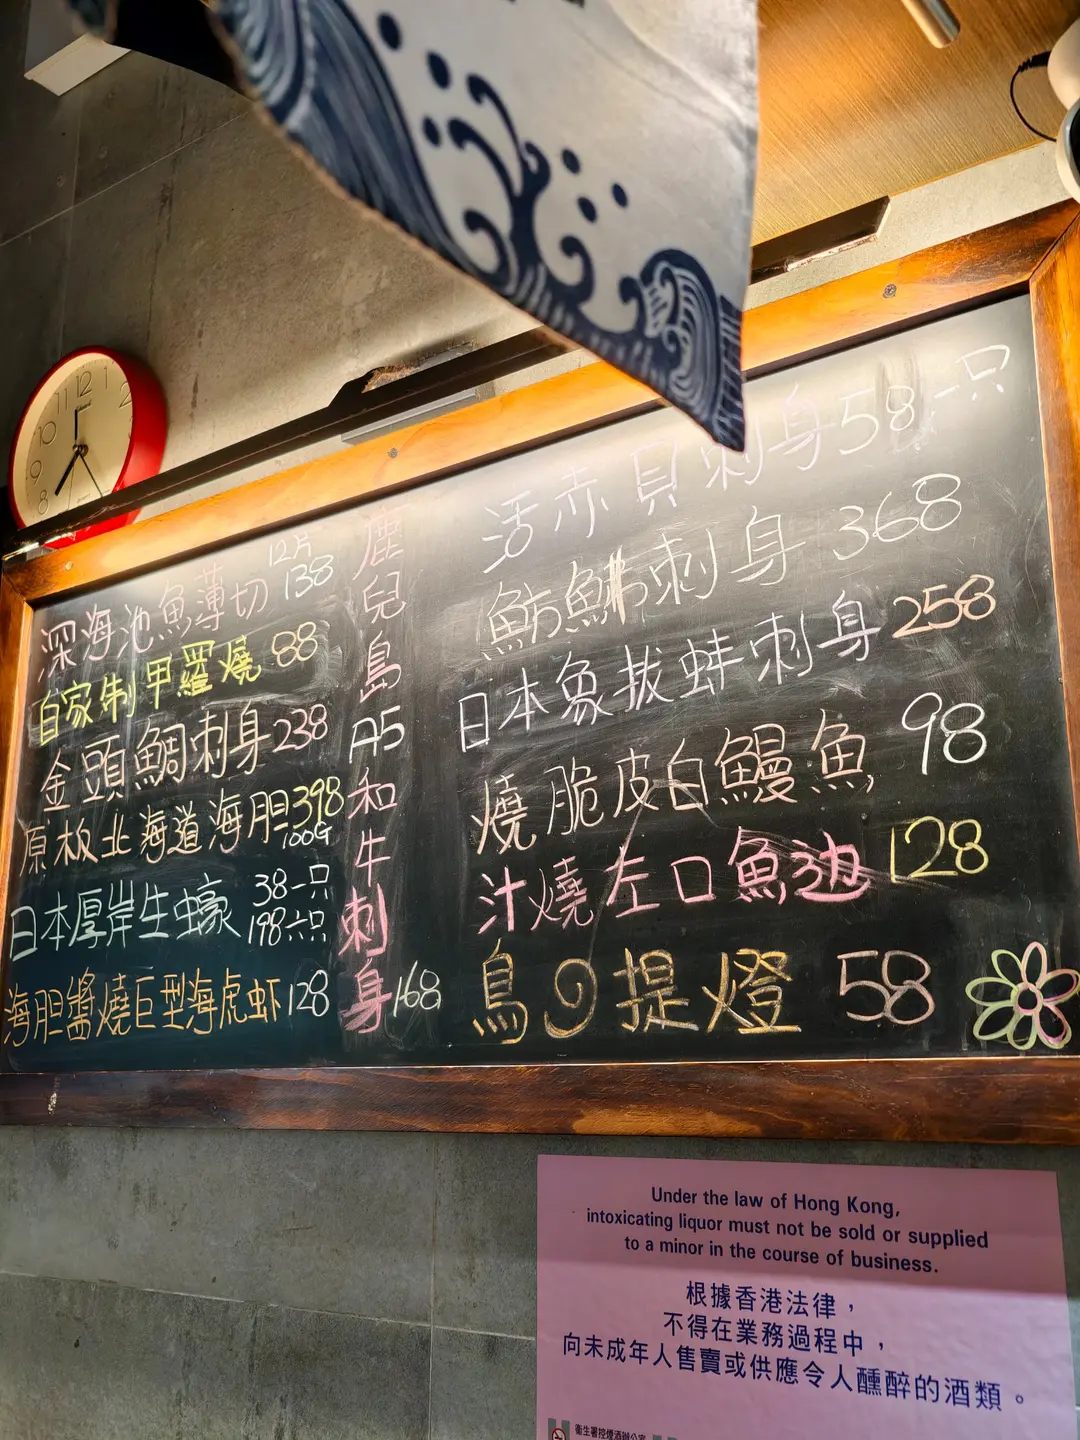 12片
深海池魚薄切 138
自家制甲羅燒 88
金頭鯛刺身 238
原板北海道海胆 398
100G
日本厚岸生蠔 38一只
198六只
海胆醬燒巨型海虎虾 128
鹿兒島A5和牛刺身 168
活赤貝刺身 58一只
刺身 368
日本象拔蚌刺身 258
燒脆皮白鰻魚 98
汁燒左口魚边 128
鳥の提燈 58
11 12 1 2
10
9
8
Under the law of Hong Kong,
intoxicating liquor must not be sold or supplied
to a minor in the course of business.
根據香港法律，
不得在業務過程中，
向未成年人售賣或供應令人醺醉的酒類。
衞生署控煙酒辦公室